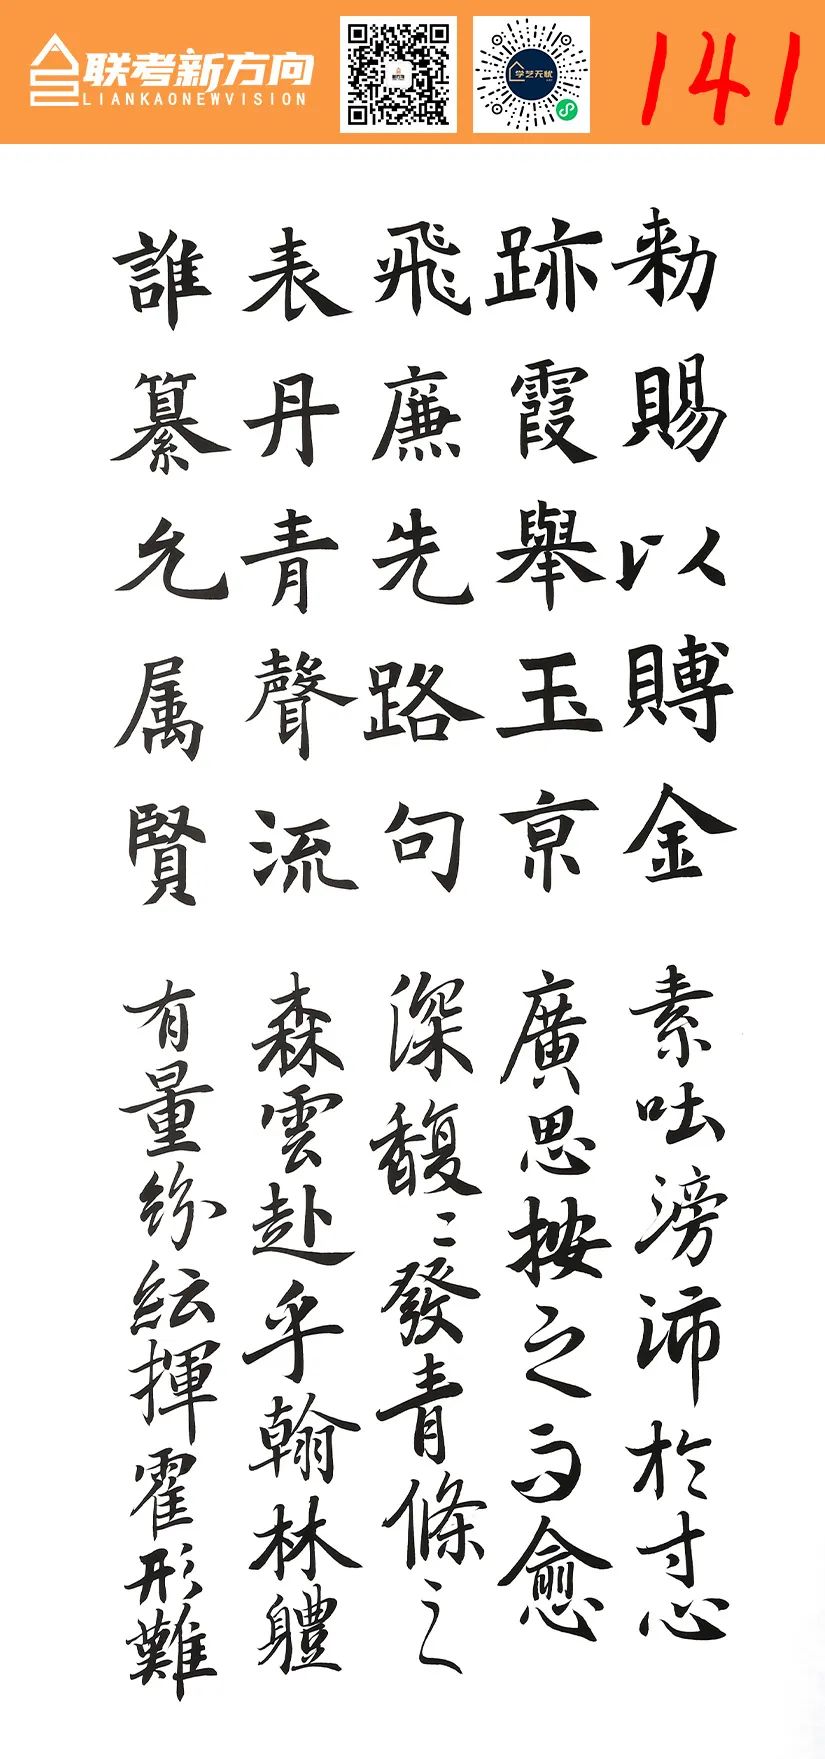 联考新方向
LIANKAONEWVISION
学艺无忧
141
勑賜以賻金
跡霞舉玉京
飛廉先路句
表丹青聲流
誰纂允属賢
素吐滂沛於寸心
廣思按之而愈
深馥〻發青條之
森雲赴乎翰林體
有量紛紜揮霍形難